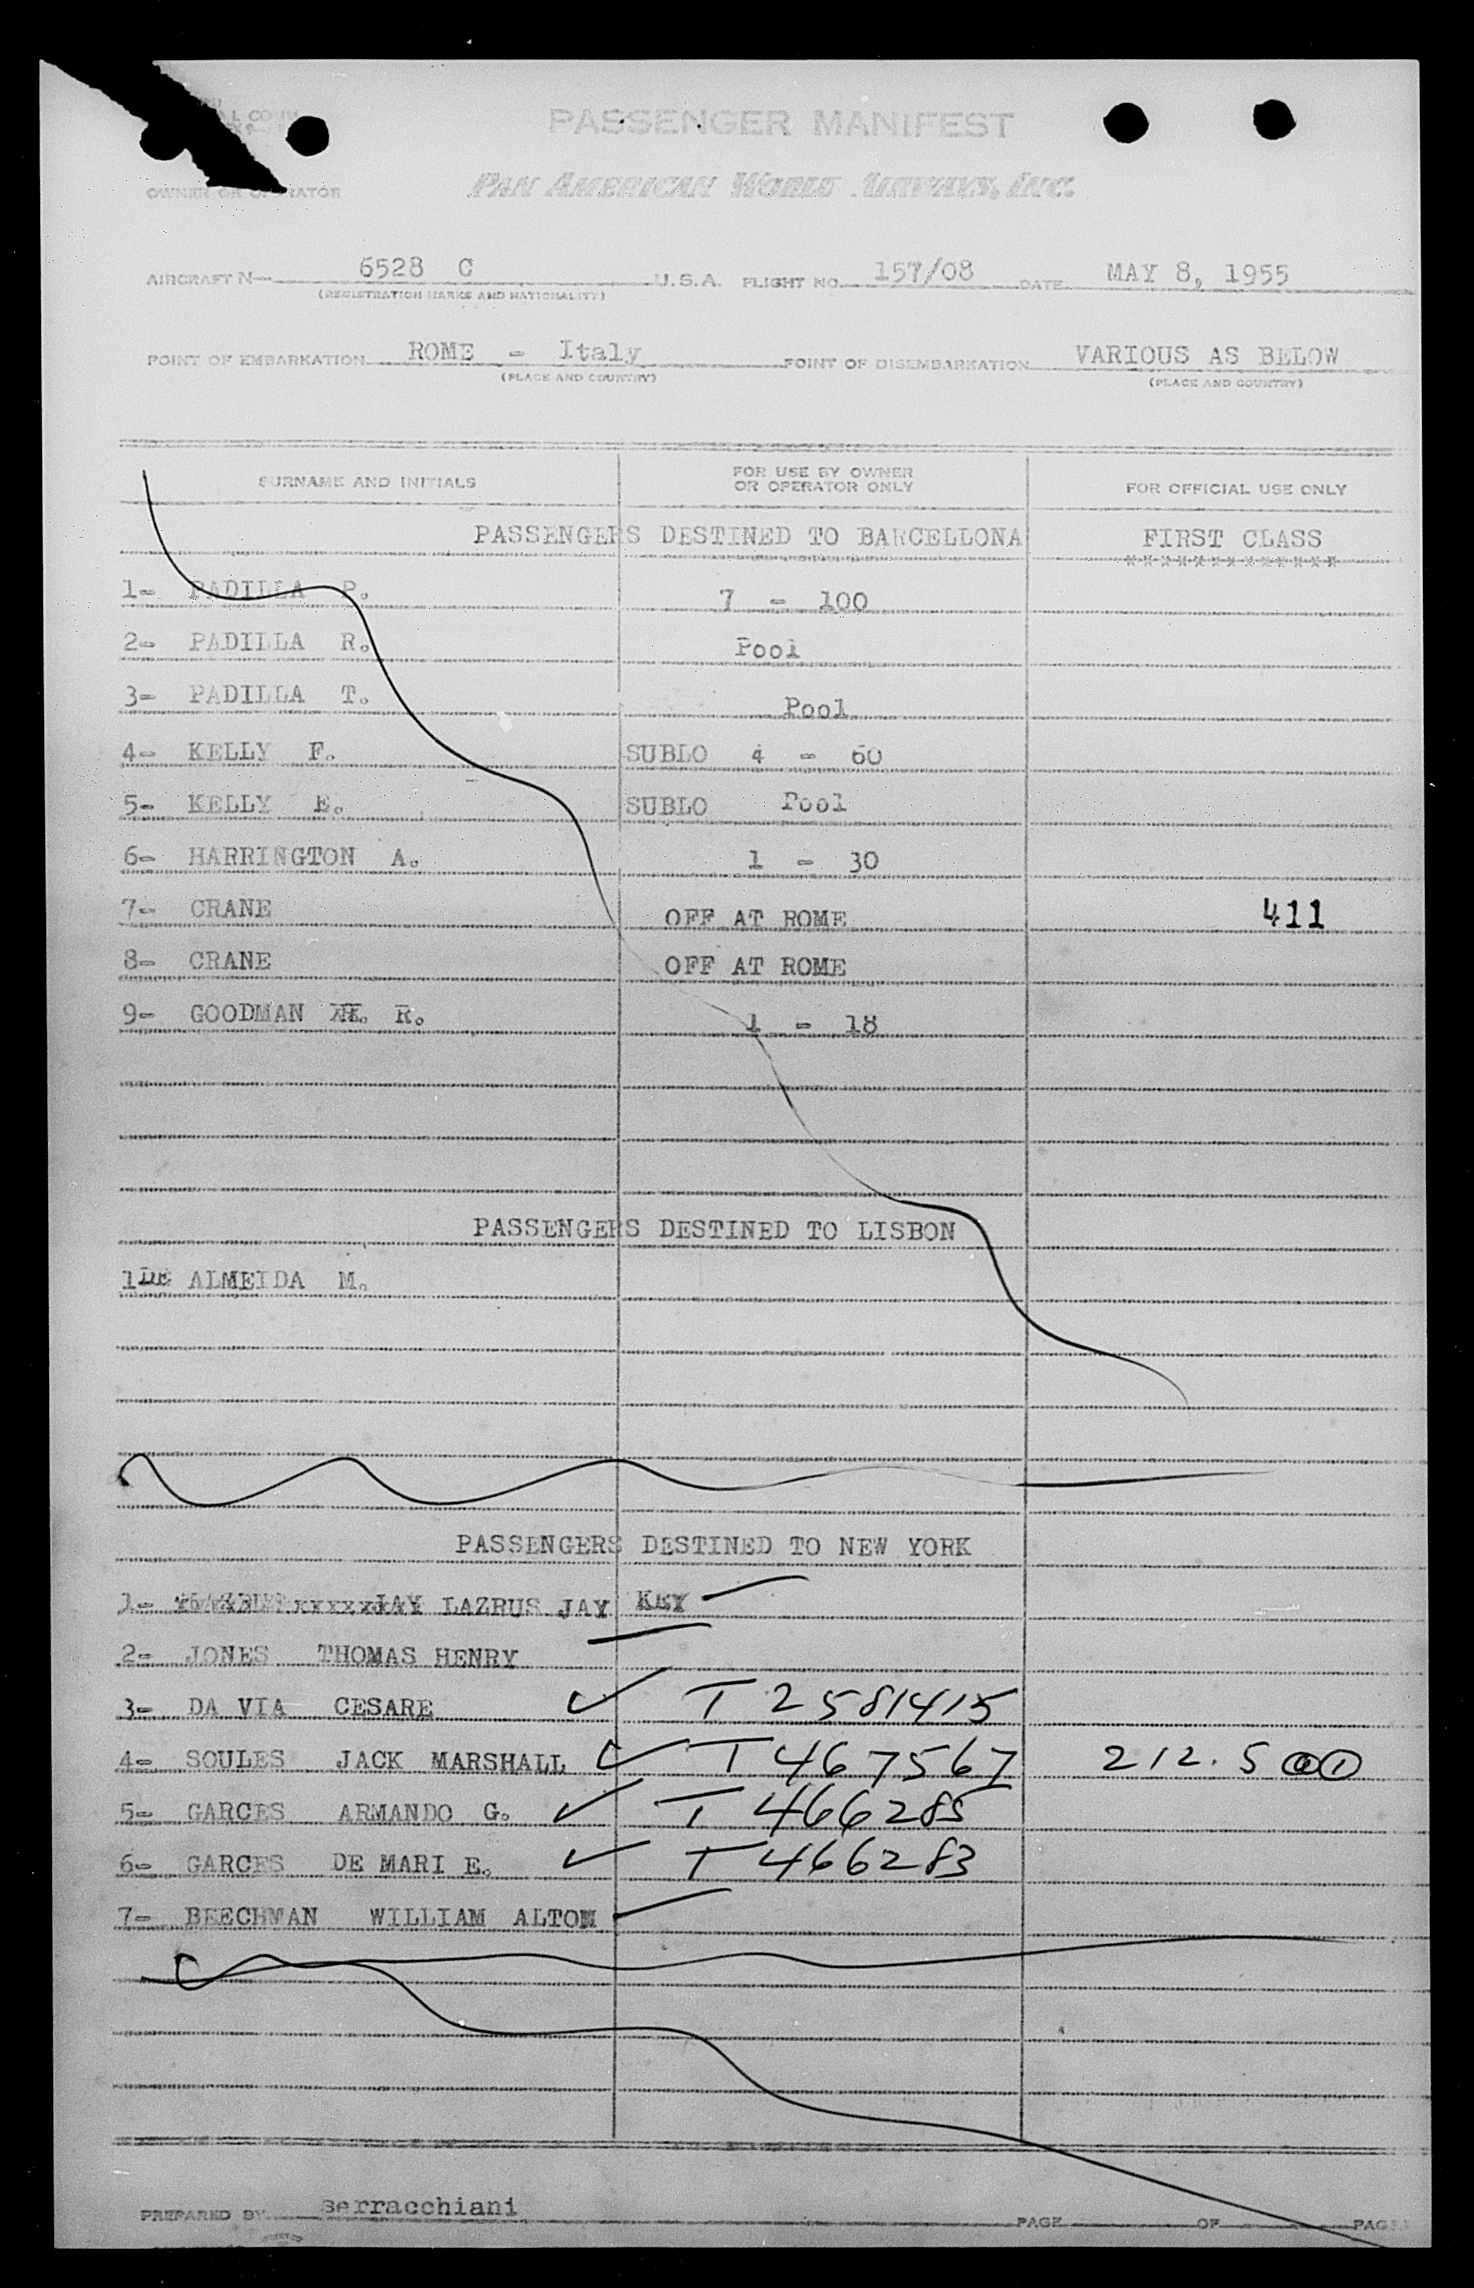 PASSENGER MANIFEST
OWNER OR OPERATOR
PAN AMERICAN WORLD AIRWAYS, INC.
AIRCRAFT N— 6528 C U.S.A. FLIGHT NO. 157/08 DATE MAY 8, 1955
(REGISTRATION MARKS AND NATIONALITY)
POINT OF EMBARKATION ROME - Italy POINT OF DISEMBARKATION VARIOUS AS BELOW
(PLACE AND COUNTRY) (PLACE AND COUNTRY)
SURNAME AND INITIALS FOR USE BY OWNER OR OPERATOR ONLY FOR OFFICIAL USE ONLY
PASSENGERS DESTINED TO BARCELLONA FIRST CLASS
1- PADILLA P. 7 - 100
2- PADILLA R. Pool
3- PADILLA T. Pool
4- KELLY F. SUBLO 4 - 60
5- KELLY E. SUBLO Pool
6- HARRINGTON A. 1 - 30
7- CRANE OFF AT ROME 411
8- CRANE OFF AT ROME
9- GOODMAN R. 1 - 18
PASSENGERS DESTINED TO LISBON
1 DE ALMEIDA M.
PASSENGERS DESTINED TO NEW YORK
1- LAZRUS JAY KEY
2- JONES THOMAS HENRY
3- DA VIA CESARE ✓ T 2581415
4- SOULES JACK MARSHALL ✓ T 467567 212.5
5- GARCES ARMANDO G. ✓ T 466285
6- GARCES DE MARI E. ✓ T 466283
7- BEECHMAN WILLIAM ALTON
PREPARED BY serracchiani PAGE OF PAGES